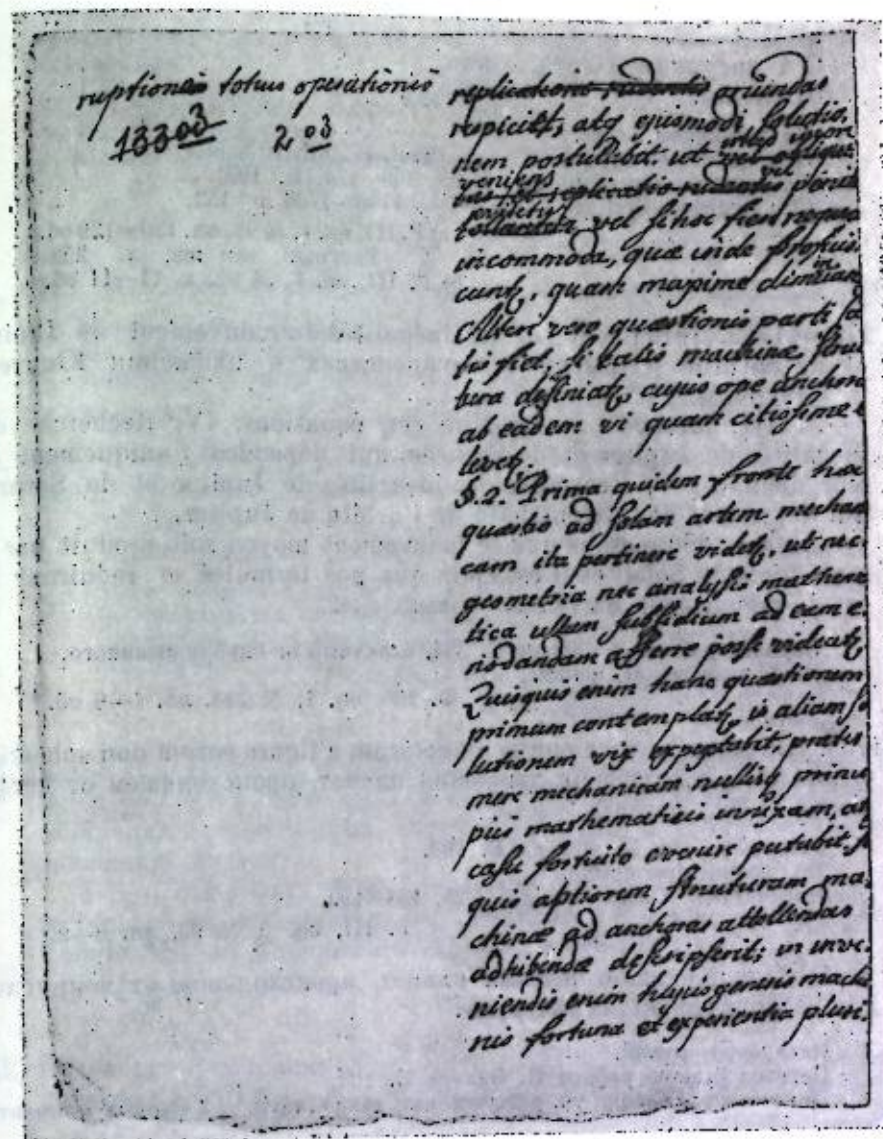 ruptioneis totius operationis
133 03 2 03
replicatione rudentis oriundas
respiciet, atq ejusmodi solutio,
nem postulabit. ut vel obliqui
veniens vel
replicatio rudentis penit
evitetur
tollantur vel si hoc fieri nequea
incommoda, quæ inde proficis,
in
cuntz, quam maxime diminuant
Alteri vero quæstionis parti sa
tis fiet, si talis machinæ struc
tura definiatz, cujus ope anchora
ab eadem vi quam citissime e
levetz.
§. 2. Prima quidem fronte hæc
quæstio ad solam artem mechani
cam ita pertinere videtz, ut nec
geometria nec analysis mathema
tica ullum subsidium ad eam e
nodandam afferre posse videatz
Quisquis enim hanc quæstionem
primum contemplatz, is aliam so
lutionem vix expectabit, præter
mere mechanicam nullisq princi
piis mathematicis innixam, at
casu fortuito evenire putabit, si
quis aptiorem structuram ma,
chinæ ad anchoras attollendas
adhibendæ descripserit; in inve,
niendis enim hujus generis machi
nis fortuna et experientia pluri,